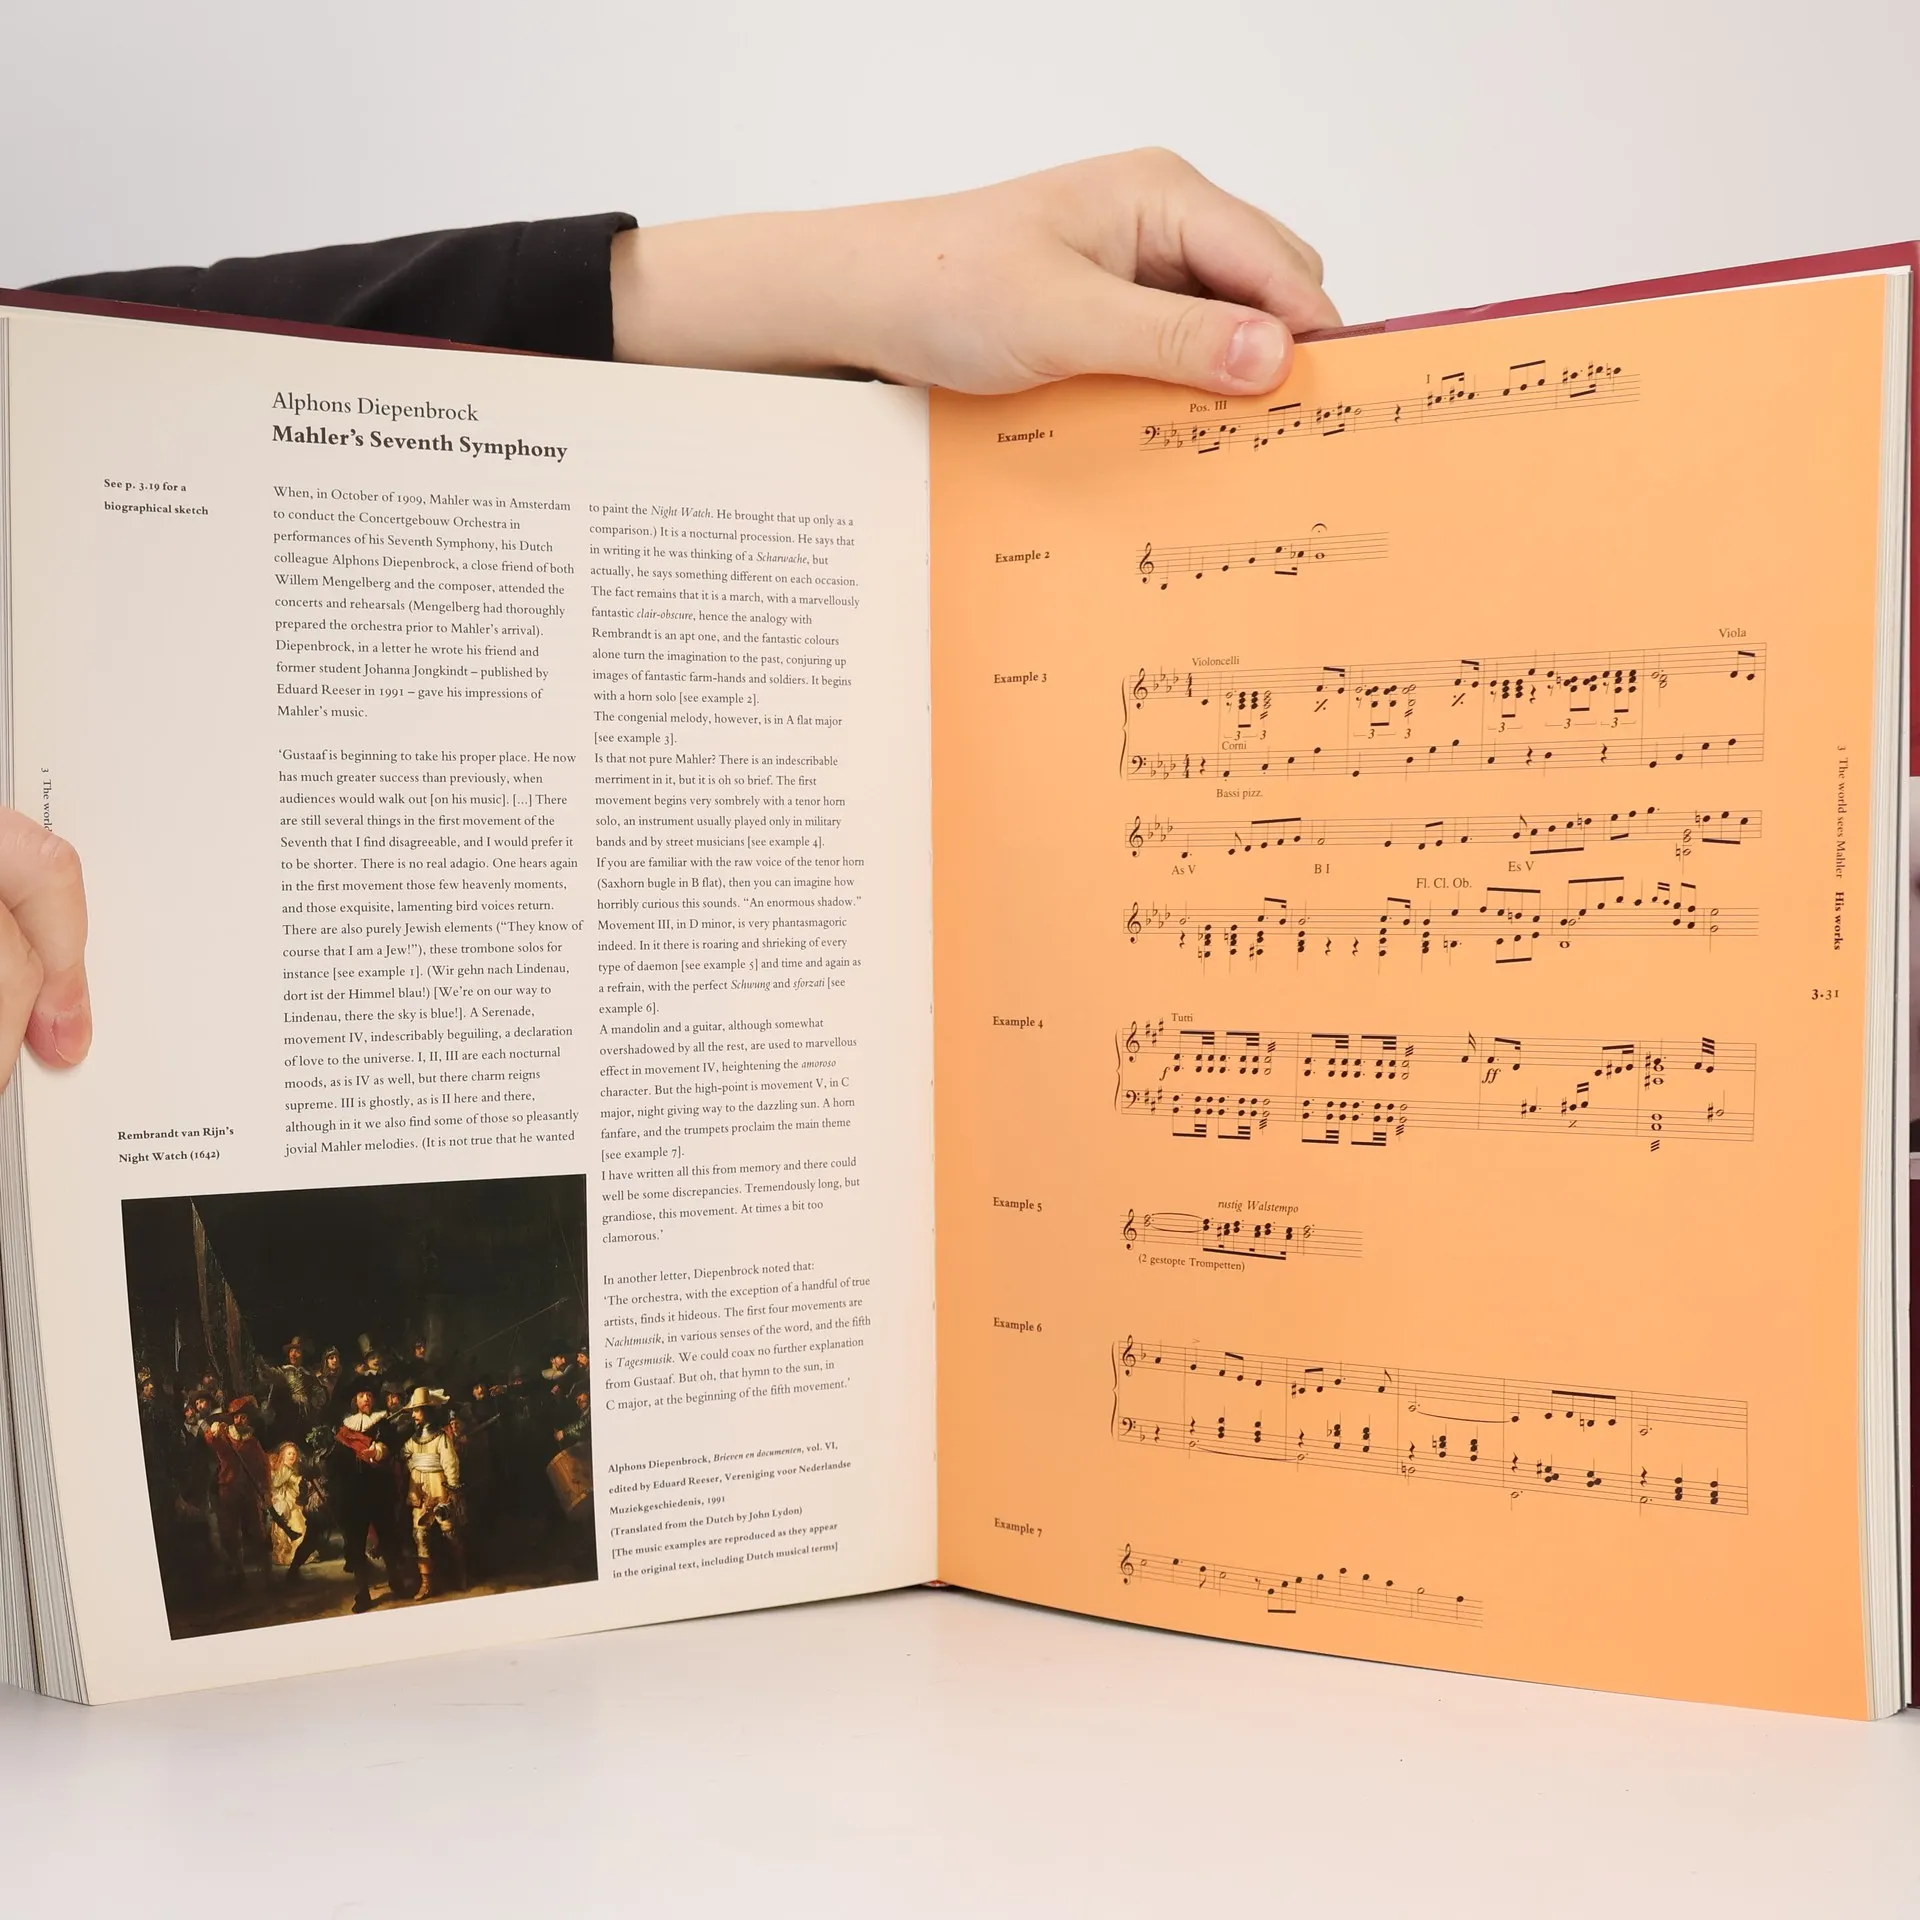 Alphons Diepenbrock
Mahler's Seventh Symphony
See p. 3.19 for a
biographical sketch
When, in October of 1909, Mahler was in Amsterdam
to conduct the Concertgebouw Orchestra in
performances of his Seventh Symphony, his Dutch
colleague Alphons Diepenbrock, a close friend of both
Willem Mengelberg and the composer, attended the
concerts and rehearsals (Mengelberg had thoroughly
prepared the orchestra prior to Mahler's arrival).
Diepenbrock, in a letter he wrote his friend and
former student Johanna Jongkindt – published by
Eduard Reeser in 1991 – gave his impressions of
Mahler's music.
'Gustaaf is beginning to take his proper place. He now
has much greater success than previously, when
audiences would walk out [on his music]. [...] There
are still several things in the first movement of the
Seventh that I find disagreeable, and I would prefer it
to be shorter. There is no real adagio. One hears again
in the first movement those few heavenly moments,
and those exquisite, lamenting bird voices return.
There are also purely Jewish elements ("They know of
course that I am a Jew!"), these trombone solos for
instance [see example 1]. (Wir gehn nach Lindenau,
dort ist der Himmel blau!) [We're on our way to
Lindenau, there the sky is blue!]. A Serenade,
movement IV, indescribably beguiling, a declaration
of love to the universe. I, II, III are each nocturnal
moods, as is IV as well, but there charm reigns
supreme. III is ghostly, as is II here and there,
although in it we also find some of those so pleasantly
jovial Mahler melodies. (It is not true that he wanted
to paint the Night Watch. He brought that up only as a
comparison.) It is a nocturnal procession. He says that
in writing it he was thinking of a Scharwache, but
actually, he says something different on each occasion.
The fact remains that it is a march, with a marvellously
fantastic clair-obscure, hence the analogy with
Rembrandt is an apt one, and the fantastic colours
alone turn the imagination to the past, conjuring up
images of fantastic farm-hands and soldiers. It begins
with a horn solo [see example 2].
The congenial melody, however, is in A flat major
[see example 3].
Is that not pure Mahler? There is an indescribable
merriment in it, but it is oh so brief. The first
movement begins very sombrely with a tenor horn
solo, an instrument usually played only in military
bands and by street musicians [see example 4].
If you are familiar with the raw voice of the tenor horn
(Saxhorn bugle in B flat), then you can imagine how
horribly curious this sounds. "An enormous shadow."
Movement III, in D minor, is very phantasmagoric
indeed. In it there is roaring and shrieking of every
type of daemon [see example 5] and time and again as
a refrain, with the perfect Schwung and sforzati [see
example 6].
A mandolin and a guitar, although somewhat
overshadowed by all the rest, are used to marvellous
effect in movement IV, heightening the amoroso
character. But the high-point is movement V, in C
major, night giving way to the dazzling sun. A horn
fanfare, and the trumpets proclaim the main theme
[see example 7].
I have written all this from memory and there could
well be some discrepancies. Tremendously long, but
grandiose, this movement. At times a bit too
clamorous.'
In another letter, Diepenbrock noted that:
'The orchestra, with the exception of a handful of true
artists, finds it hideous. The first four movements are
Nachtmusik, in various senses of the word, and the fifth
is Tagesmusik. We could coax no further explanation
from Gustaaf. But oh, that hymn to the sun, in
C major, at the beginning of the fifth movement.'
Alphons Diepenbrock, Brieven en documenten, vol. VI,
edited by Eduard Reeser, Vereniging voor Nederlandse
Muziekgeschiedenis, 1991
(Translated from the Dutch by John Lydon)
[The music examples are reproduced as they appear
in the original text, including Dutch musical terms]
Rembrandt van Rijn's
Night Watch (1642)
3 The world
Example 1
Pos. III
I
Example 2
Example 3
Violoncelli
Viola
3 3 3 3 3 3 3
Corni
Bassi pizz.
As V B I Es V
Fl. Cl. Ob.
Example 4
Tutti
f ff
Example 5
rustig Walstempo
(2 gestopte Trompetten)
Example 6
Example 7
3 The world sees Mahler His works
3.31